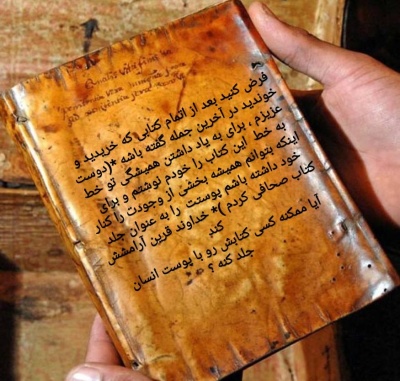 فرض کنید بعد از اتمام کتابی که خریدید و
خوندید در آخرین جمله گفته باشه *(دوست
عزیزم ، برای به یاد داشتن همیشگی تو خط
به خط این کتاب را خودم نوشتم و برای
اینکه بتوانم همیشه بخشی از وجودت را کنار
خود داشته باشم پوستت را به عنوان جلد
کتاب صحافی کردم )* خداوند قرین آرامشش
کند
آیا ممکنه کسی کتابش رو با پوست انسان
جلد کنه ؟